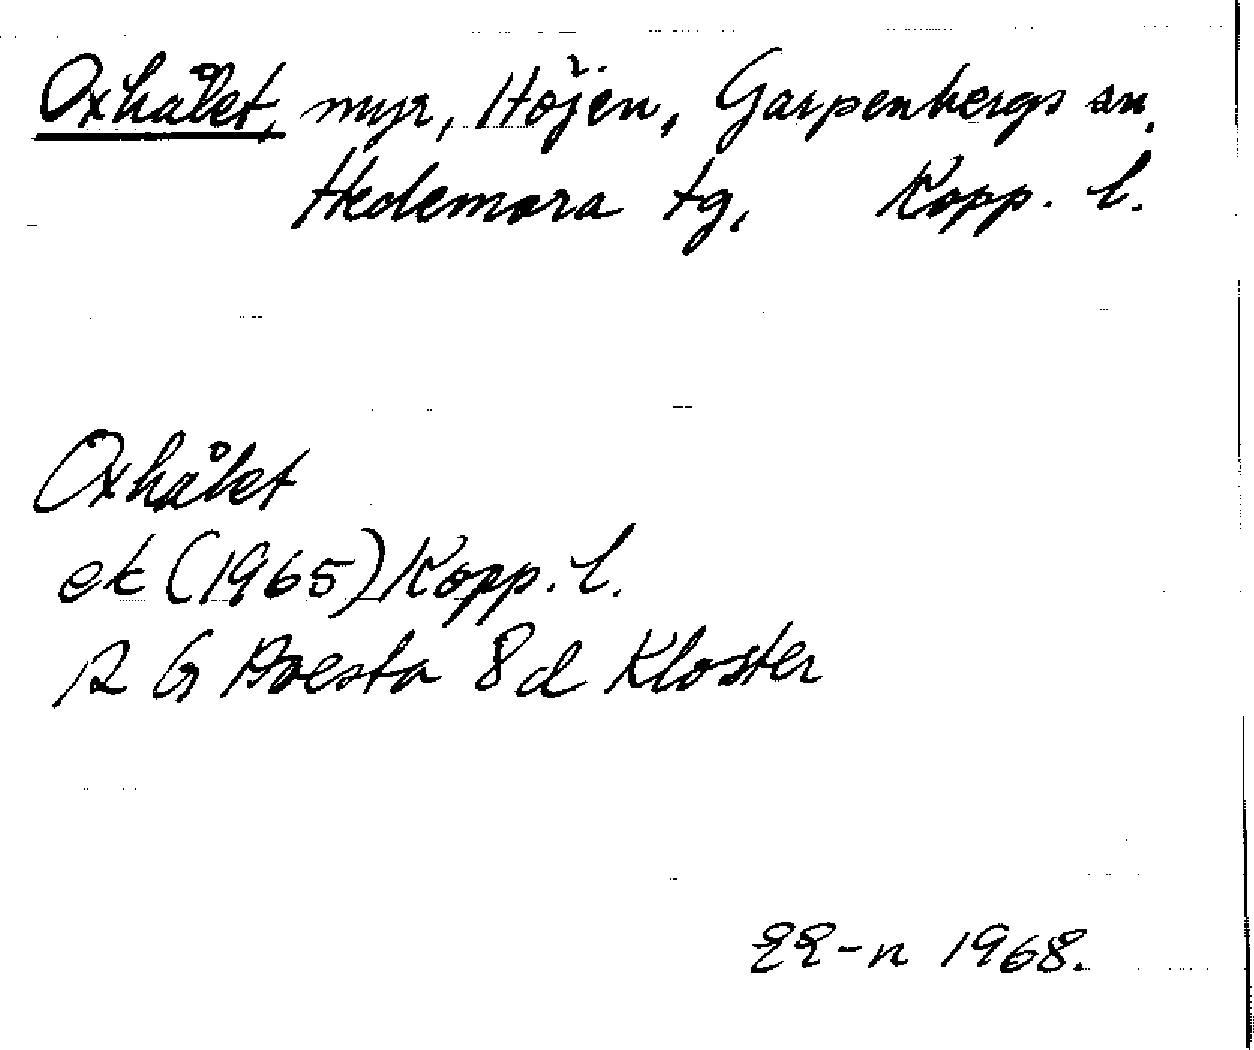 Oxhålet, myr, Höjen, Garpenbergs sn,
Hedemora tg, Kopp. l.
Oxhålet
ek (1965) Kopp. l.
R G Boesta 8d Kloster
EE-n 1968.